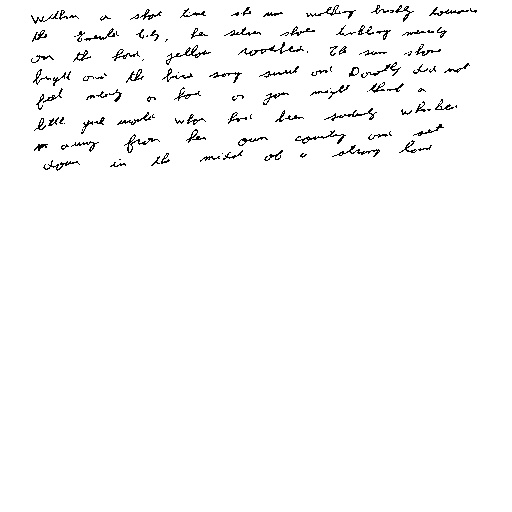 Within a short time she was walking briskly towards
the Emerald City, her silver shoes tinkling merrily
on the hard, yellow roadbed. The sun shone
bright and the birds sang sweet and Dorothy did not
feel nearly as bad as you might think a
little girl would who had been suddenly whisked
away from her own country and set
down in the midst of a strange land